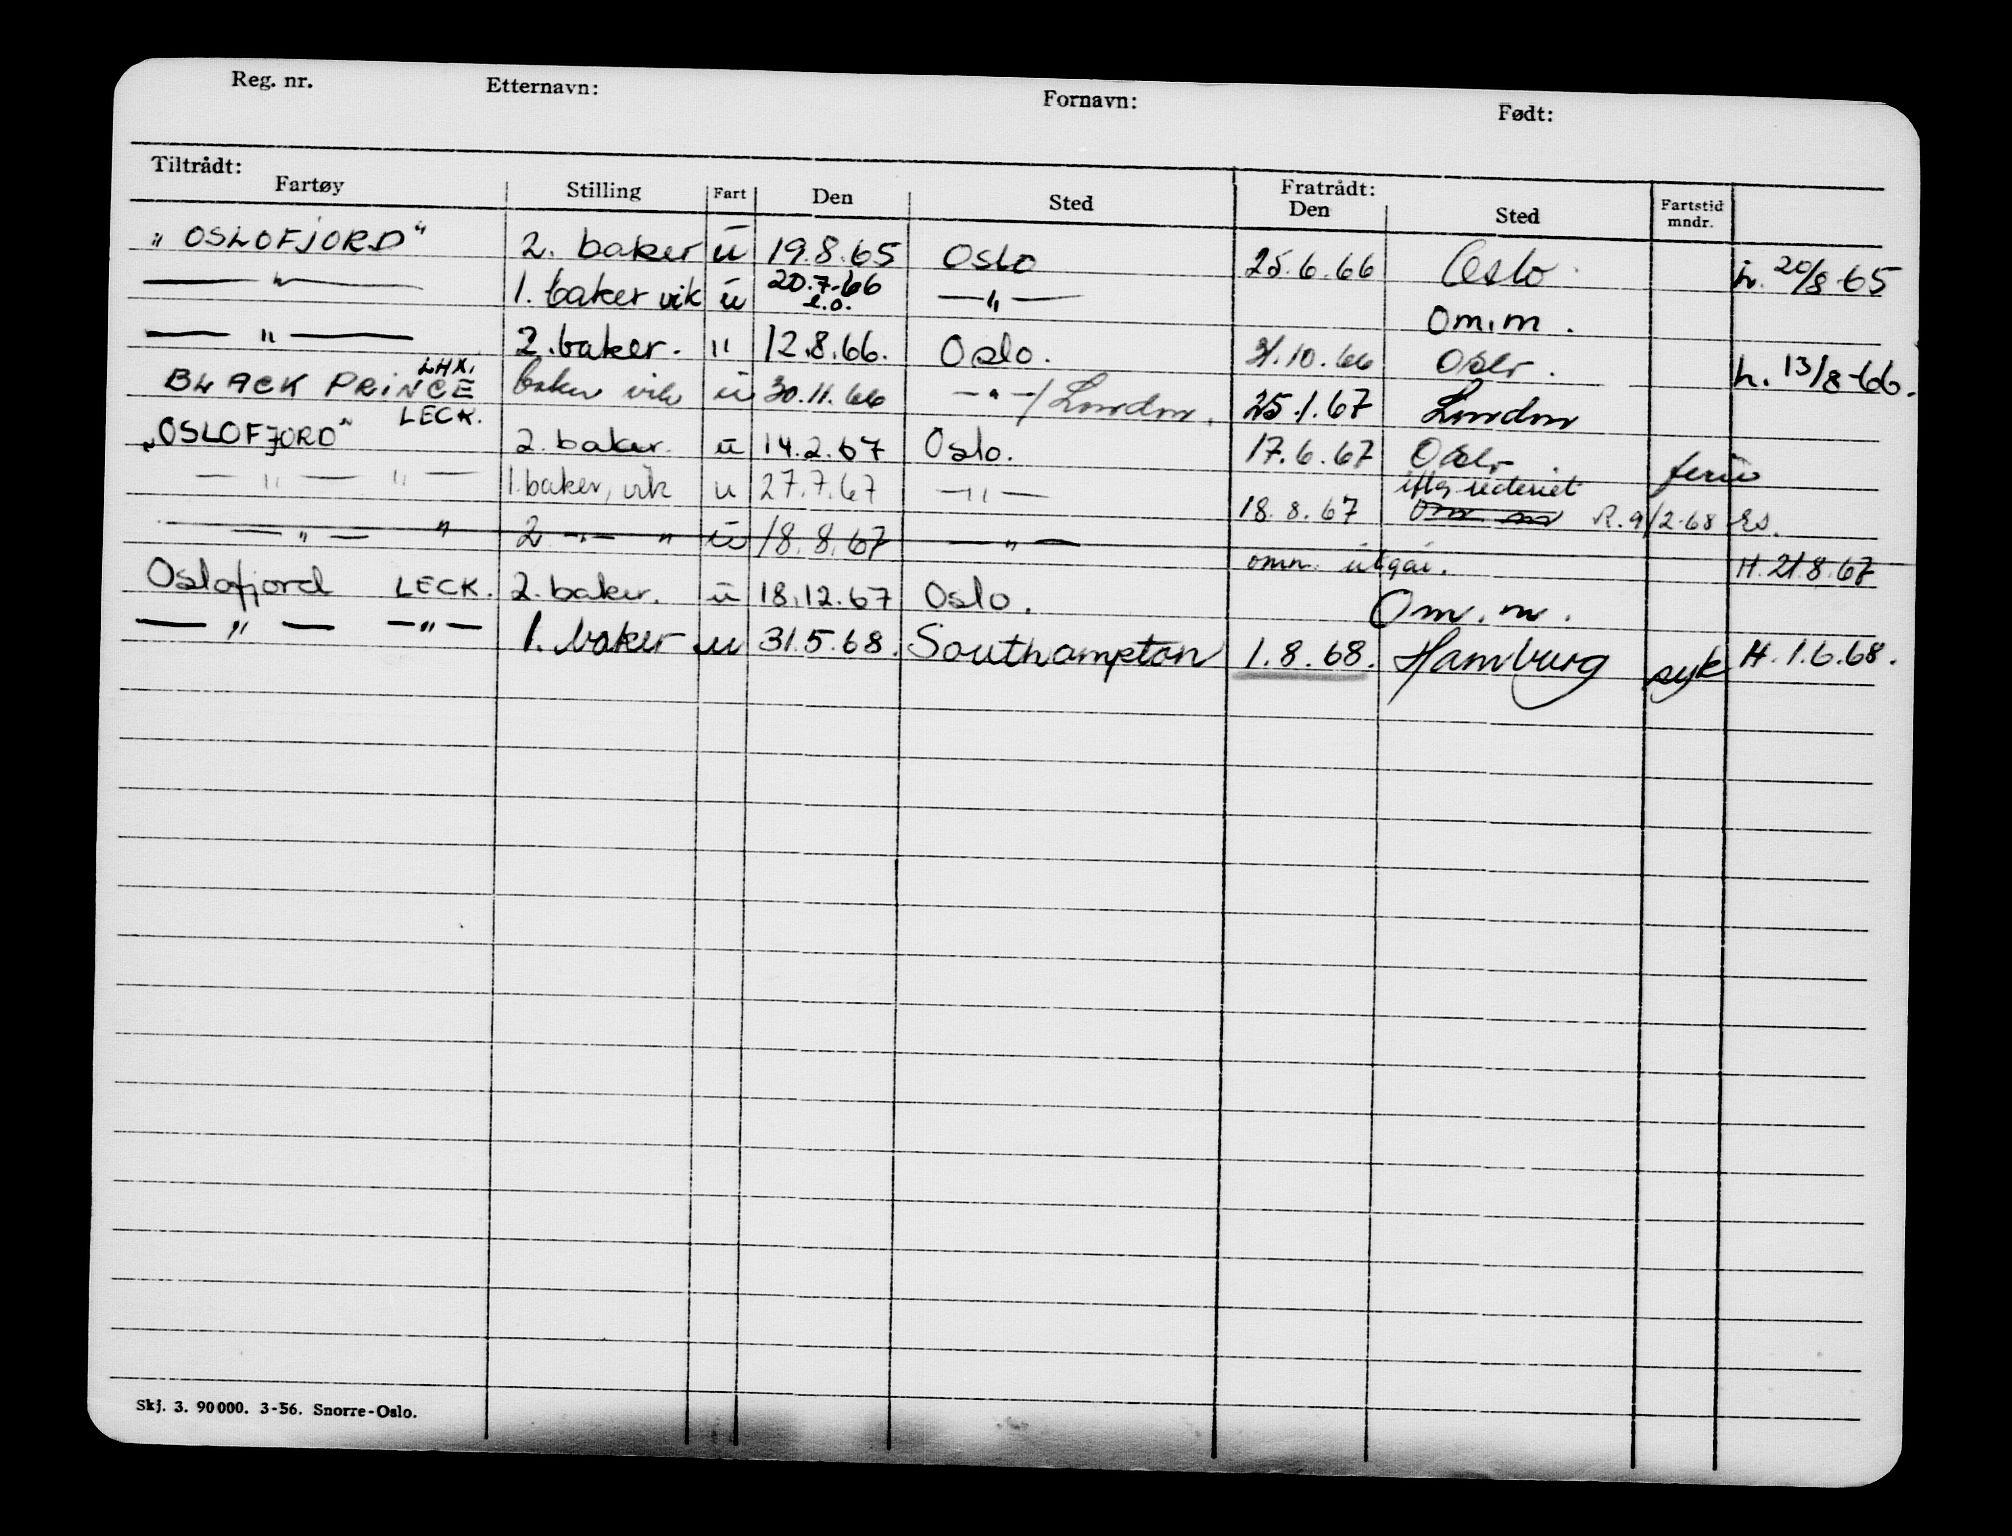 Reg. nr. Etternavn: Fornavn: Født:
Tiltrådt: Fratrådt:
Fartøy Stilling Fart Den Sted Den Sted Fartstid mndr.
"OSLOFJORD" 2. baker u 19.8.65 Oslo 25.6.66 Oslo h. 20/8-65
— " — 1. baker vik u 20.7.66 — " — Om.m.
— " — 2. baker. " 12.8.66. Oslo. 31.10.66 Oslo. h. 13/8-66.
BLACK PRINCE LHXI baker vik u 30.11.66 — " — / London. 25.1.67 London
"OSLOFJORD" LECK. 2. baker. u 14.2.67 Oslo. 17.6.67 Oslo ferie
— " — " — 1. baker, vik u 27.7.67 — " — 18.8.67 Om m R. 9/2-68
— " — " 2 — " — " u 18.8.67 — " — omm. utgår. H. 21.8.67
Oslofjord LECK. 2. baker. u 18.12.67 Oslo. Om.m.
— " — — " — 1. baker u 31.5.68. Southampton 1.8.68. Hamburg syk H. 1.6.68.
Skj. 3. 90000. 3-56. Snorre-Oslo.